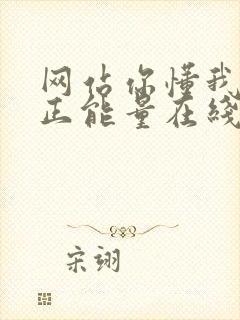 网站你懂我
正能量在线
宋翊